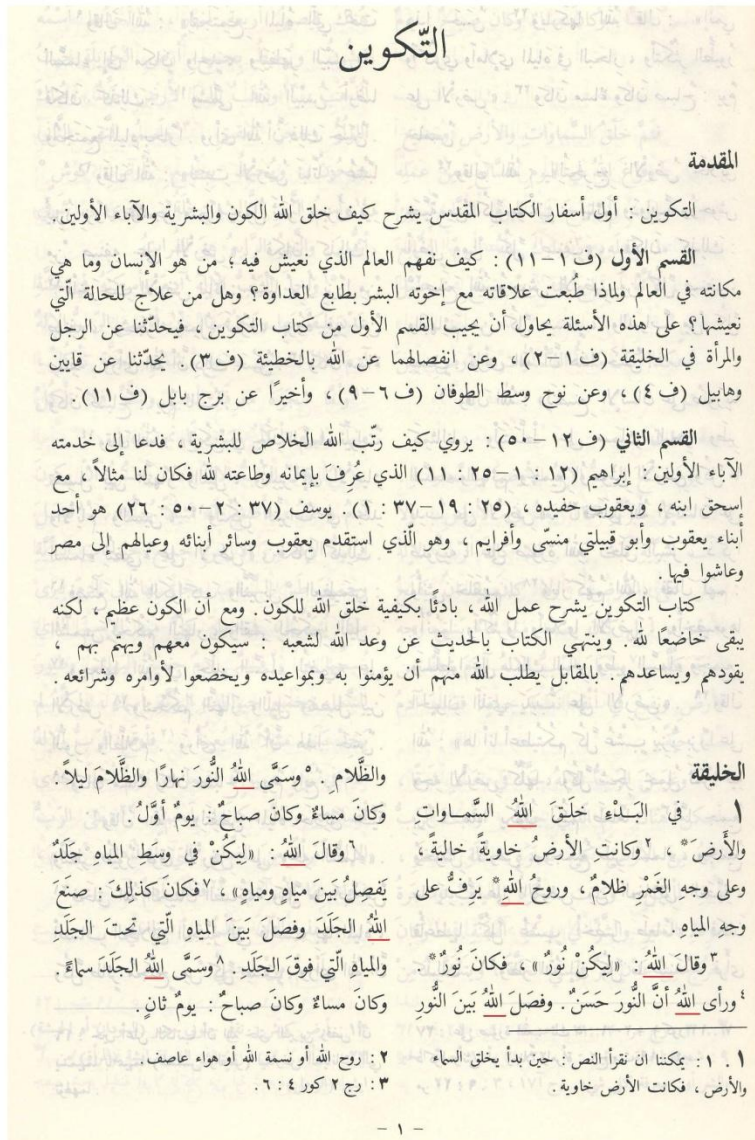 التّكوين
المقدمة
التكوين : أول أسفار الكتاب المقدس يشرح كيف خلق الله الكون والبشرية والآباء الأولين.
القسم الأول (ف ١-١١) : كيف نفهم العالم الذي نعيش فيه ؛ من هو الإنسان وما هي
مكانته في العالم ولماذا طُبعت علاقاته مع إخوته البشر بطابع العداوة ؟ وهل من علاج للحالة الّتي
نعيشها ؟ على هذه الأسئلة يحاول أن يجيب القسم الأول من كتاب التكوين ، فيحدّثنا عن الرجل
والمرأة في الخليقة (ف ١-٢) ، وعن انفصالهما عن الله بالخطيئة (ف ٣). يحدّثنا عن قايين
وهابيل (ف ٤) ، وعن نوح وسط الطوفان (ف ٦-٩) ، وأخيرًا عن برج بابل (ف ١١).
القسم الثاني (ف ١٢-٥٠) : يروي كيف رتّب الله الخلاص للبشرية ، فدعا إلى خدمته
الآباء الأولين : إبراهيم (١٢ : ١-٢٥ : ١١) الذي عُرِفَ بإيمانه وطاعته لله فكان لنا مثالاً ، مع
إسحق ابنه ، ويعقوب حفيده ، (٢٥ : ١٩-٣٧ : ١). يوسف (٣٧ : ٢-٥٠ : ٢٦) هو أحد
أبناء يعقوب وأبو قبيلتي منسّى وأفرايم ، وهو الّذي استقدم يعقوب وسائر أبنائه وعيالهم إلى مصر
وعاشوا فيها.
كتاب التكوين يشرح عمل الله ، بادئًا بكيفية خلق الله للكون. ومع أن الكون عظيم ، لكنه
يبقى خاضعًا لله. وينتهي الكتاب بالحديث عن وعد الله لشعبه : سيكون معهم ويهتم بهم ،
يقودهم ويساعدهم. بالمقابل يطلب الله منهم أن يؤمنوا به وبمواعيده ويخضعوا لأوامره وشرائعه.
الخليقة
١ في البَـدْءِ خلَـقَ اللهُ السَّمـاواتِ
والأَرضَ* ، ٢وكانتِ الأرضُ خاويةً خاليةً ،
وعلى وجهِ الغَمْرِ ظلامٌ ، وروحُ اللهِ* يَرِفُّ على
وجهِ المياهِ.
٣وقالَ اللهُ : «لِيكُنْ نُورٌ» ، فكانَ نُورٌ*.
٤ورأى اللهُ أنَّ النُّورَ حَسَنٌ. وفصَلَ اللهُ بَينَ النُّورِ
والظَّلامِ. ٥وسَمَّى اللهُ النُّورَ نهارًا والظَّلامَ ليلاً.
وكانَ مساءٌ وكانَ صباحٌ : يومٌ أوَّلُ.
٦وقالَ اللهُ : «لِيكُنْ في وسَطِ المياهِ جَلَدٌ
يَفصِلُ بَينَ مياهٍ ومياهٍ» ، ٧فكانَ كذلكَ : صنَعَ
اللهُ الجلَدَ وفصَلَ بَينَ المياهِ الّتي تحتَ الجلَدِ
والمياهِ الّتي فوقَ الجلَدِ. ٨وسَمَّى اللهُ الجلَدَ سماءً.
وكانَ مساءٌ وكانَ صباحٌ : يومٌ ثانٍ.
١. ١ : يمكننا ان نقرأ النص : حين بدأ يخلق السماء
والأرض ، فكانت الأرض خاوية.
٢ : روح الله أو نسمة الله أو هواء عاصف.
٣ : رج ٢ كور ٤ : ٦.
- ١ -